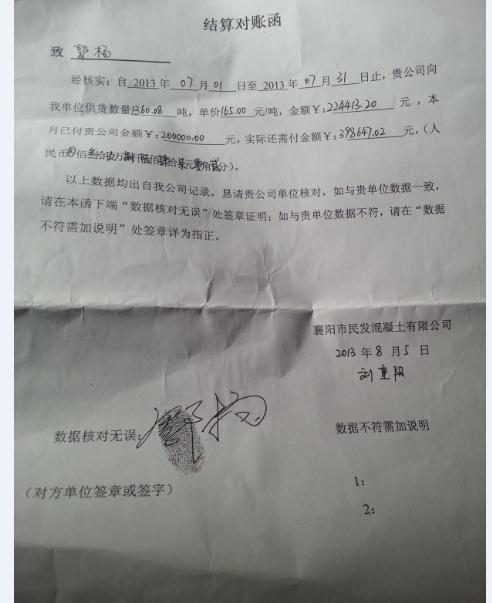 结算对账函
致 郭杨
经核实：自 2013 年 07 月 01 日至 2013 年 07 月 31 日止，贵公司向
我单位供货数量1360.08 吨，单价165.00 元/吨，金额￥：224413.20 元，本
月已付贵公司金额￥：200000.00 元，实际还需付金额￥：398647.02 元，（人
民币 佰叁拾 万 仟 佰 拾 元 角 分）。
以上数据均出自我公司记录，恳请贵公司单位核对，如与贵单位数据一致，
请在本函下端“数据核对无误”处签章证明；如与贵单位数据不符，请在“数据
不符需加说明”处签章详为指正。
襄阳市民发混凝土有限公司
2013 年 8 月 5 日
刘重阳
数据核对无误：郭杨
数据不符需加说明
（对方单位签章或签字）
1：
2：